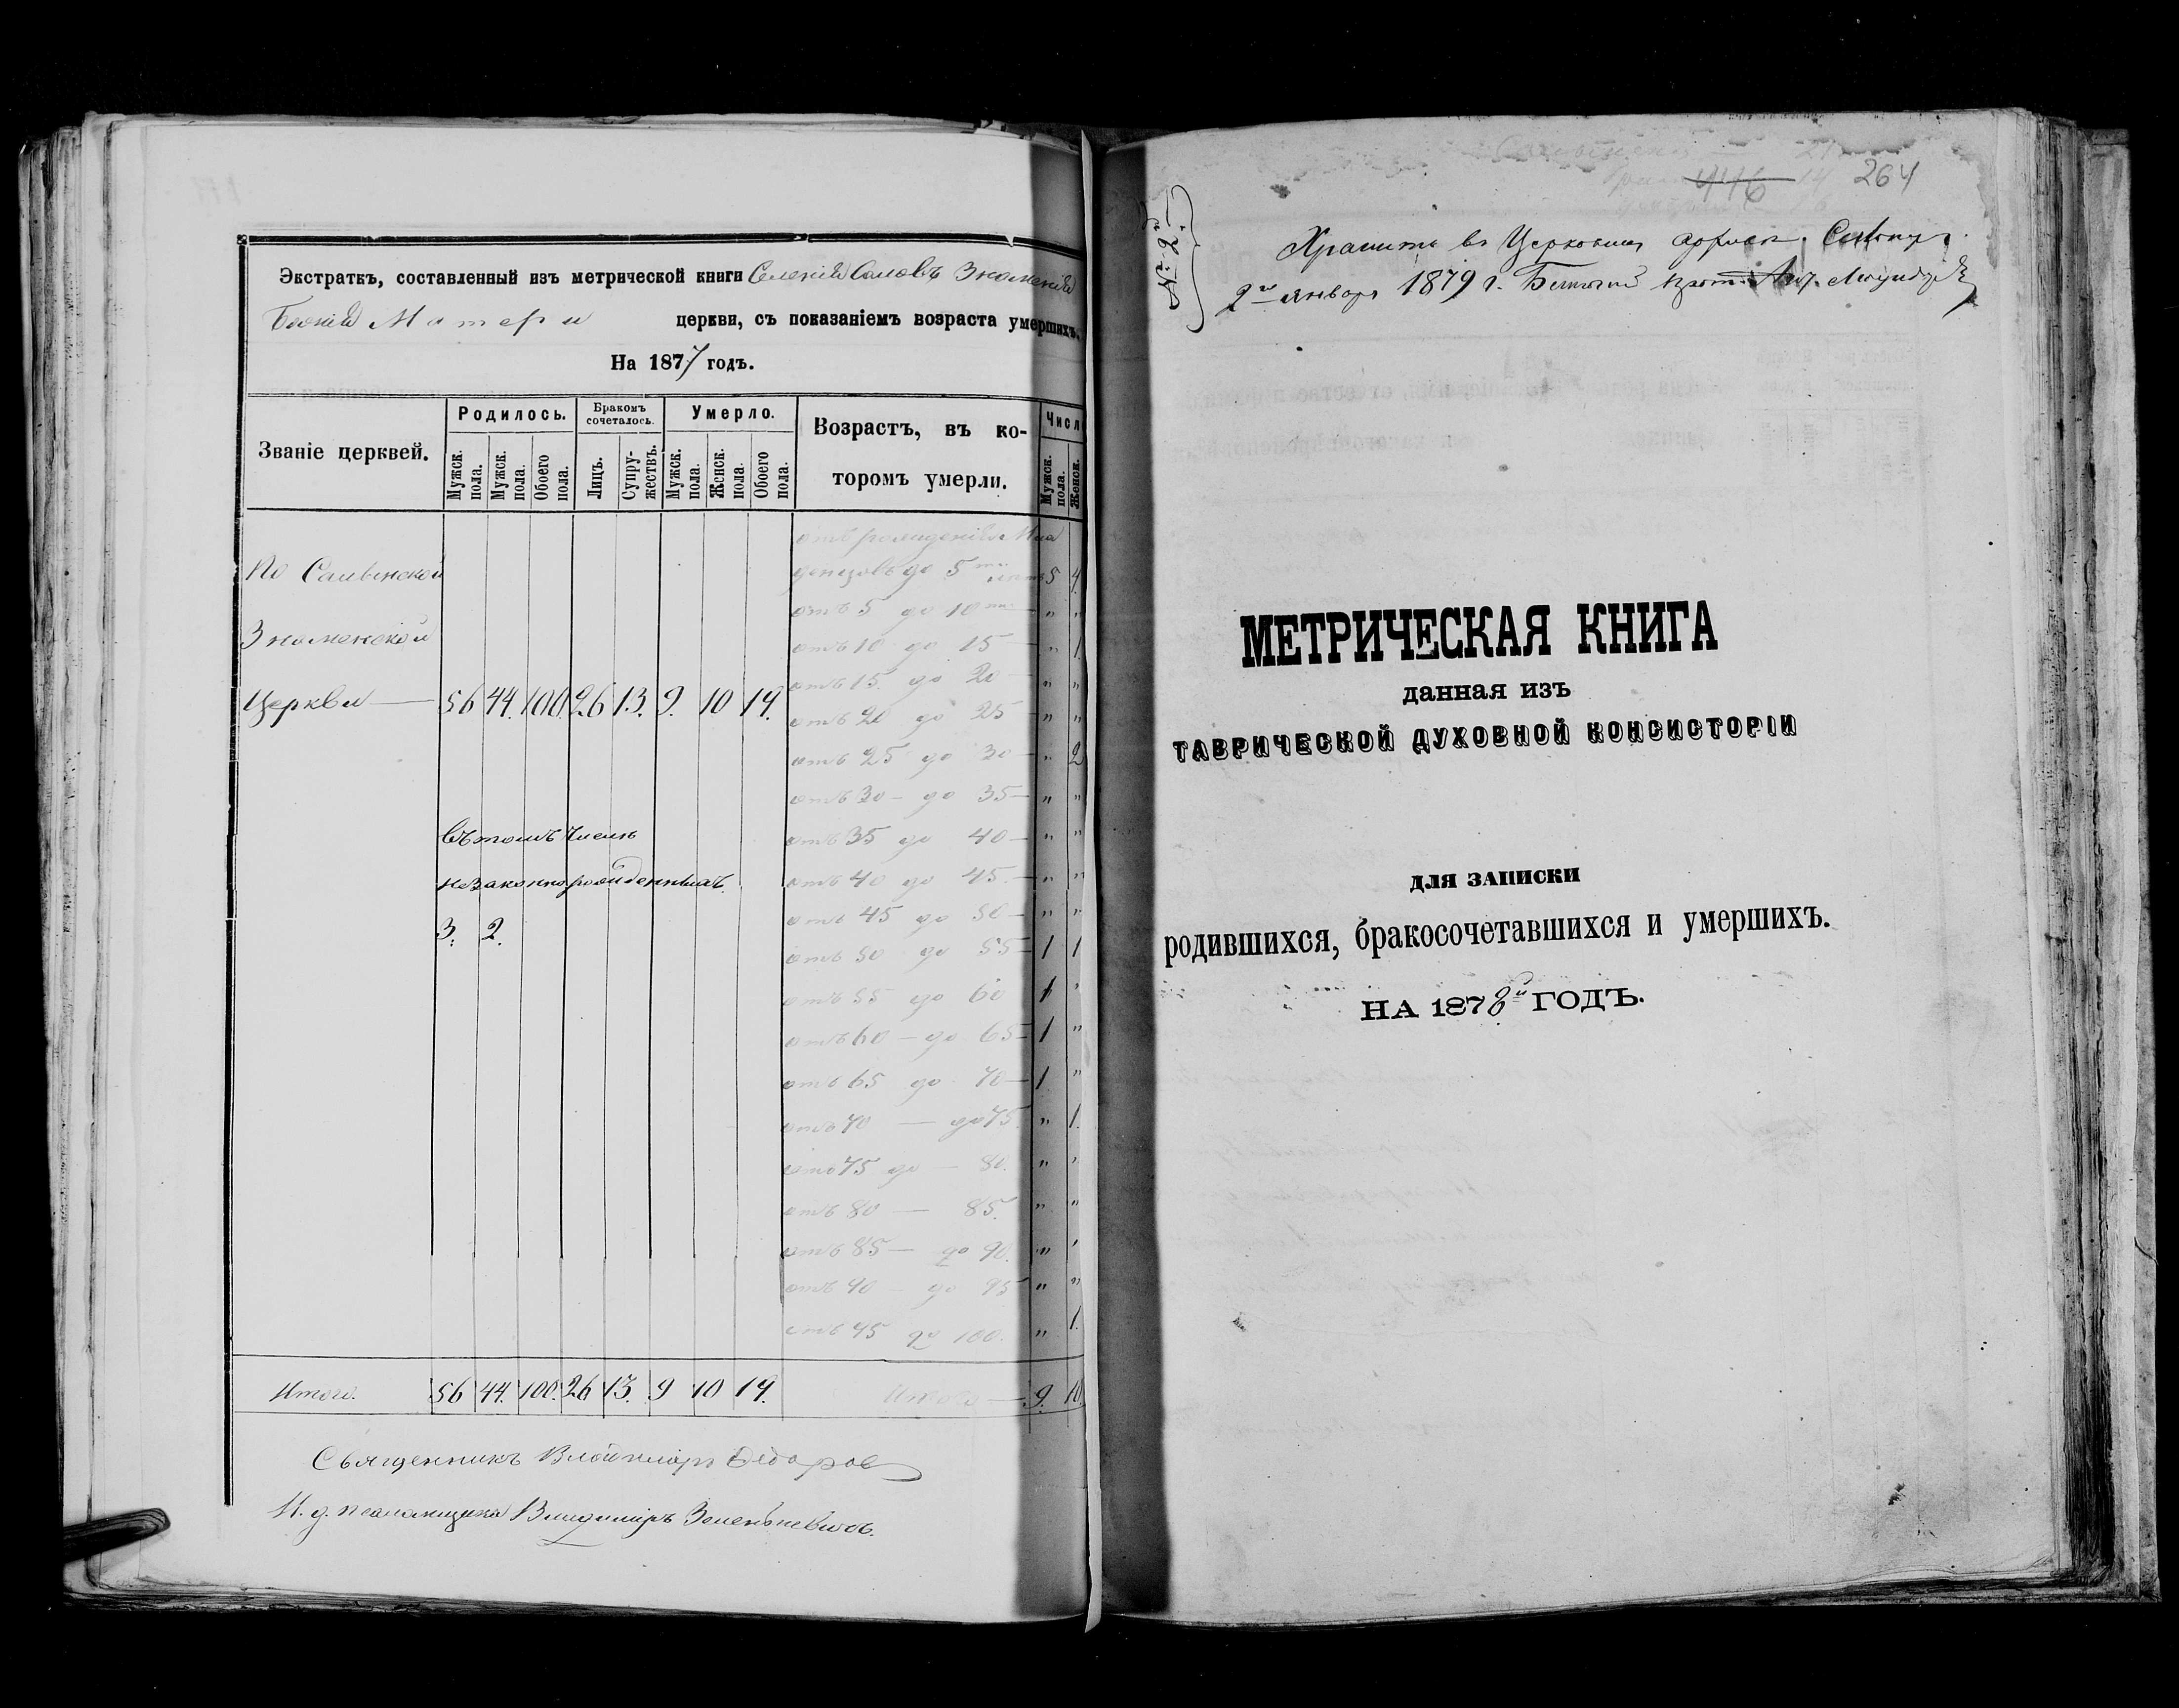 Экстрактъ, составленный изъ метрической книги Селенія Саловъ Знаменія
Божіей Матери церкви, съ показаніемъ возраста умершихъ.
На 1877 годъ.
Званіе церквей.
Родилось.
Бракомъ сочеталось.
Умерло.
Возрастъ, въ которомъ умерли.
Числ
Мужск. пола.
Мужск. пола.
Обоего пола.
Лицъ.
Супружествъ.
Мужск. пола.
Женск. пола.
Обоего пола.
Мужск. пола.
Женск.
отъ рожденія Мла
денцовъ до 5 ти лѣтъ 5 4
По
отъ 5 до 10 " "
Знаменской отъ 10 до 15 — " 1
отъ 15 до 20 " "
Церкви — 56 44. 100. 26 13. 9. 10 19.
отъ 20 до 25 — " "
отъ 25 до 30 — " 2
отъ 30 — до 35 — " "
въ томъ числѣ отъ 35 до 40 — " "
незаконнорожденныхъ. отъ 40 до 45. — " "
3. 2. отъ 45 до 50 — " "
отъ 50 до 55 — 1 1
отъ 55 до 60 1 "
отъ 60 — до 65 — 1 "
отъ 65 до 70 — 1 "
отъ 70 — до 75. " 1.
отъ 75 до — 80. " "
отъ 80 — 85. " "
отъ 85 — до 90. " "
отъ 90 — до 95 " "
отъ 95 до 100. " 1.
Итого. 56 44. 100. 26 13. 9 10 19. Итого — 9. 10.
Священникъ Владиміръ Ѳедоров
И. д. псаломщика Владиміръ
№ 2й
446 264
Хранить въ Церковн
2го января 1879 г.
МЕТРИЧЕСКАЯ КНИГА
данная изъ
ТАВРИЧЕСКОЙ ДУХОВНОЙ КОНСИСТОРІИ
для записки
родившихся, бракосочетавшихся и умершихъ.
НА 1878й ГОДЪ.